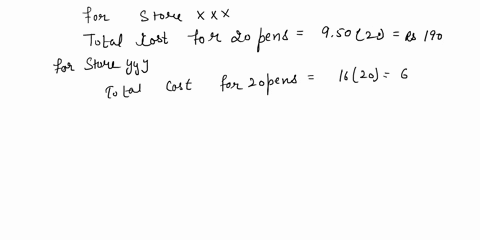 for Store xxx
Total Cost for 20 pens = 9.50 (20) = Rs 190
for Store yyy
Total Cost for 20 pens = 16 (20) = 6